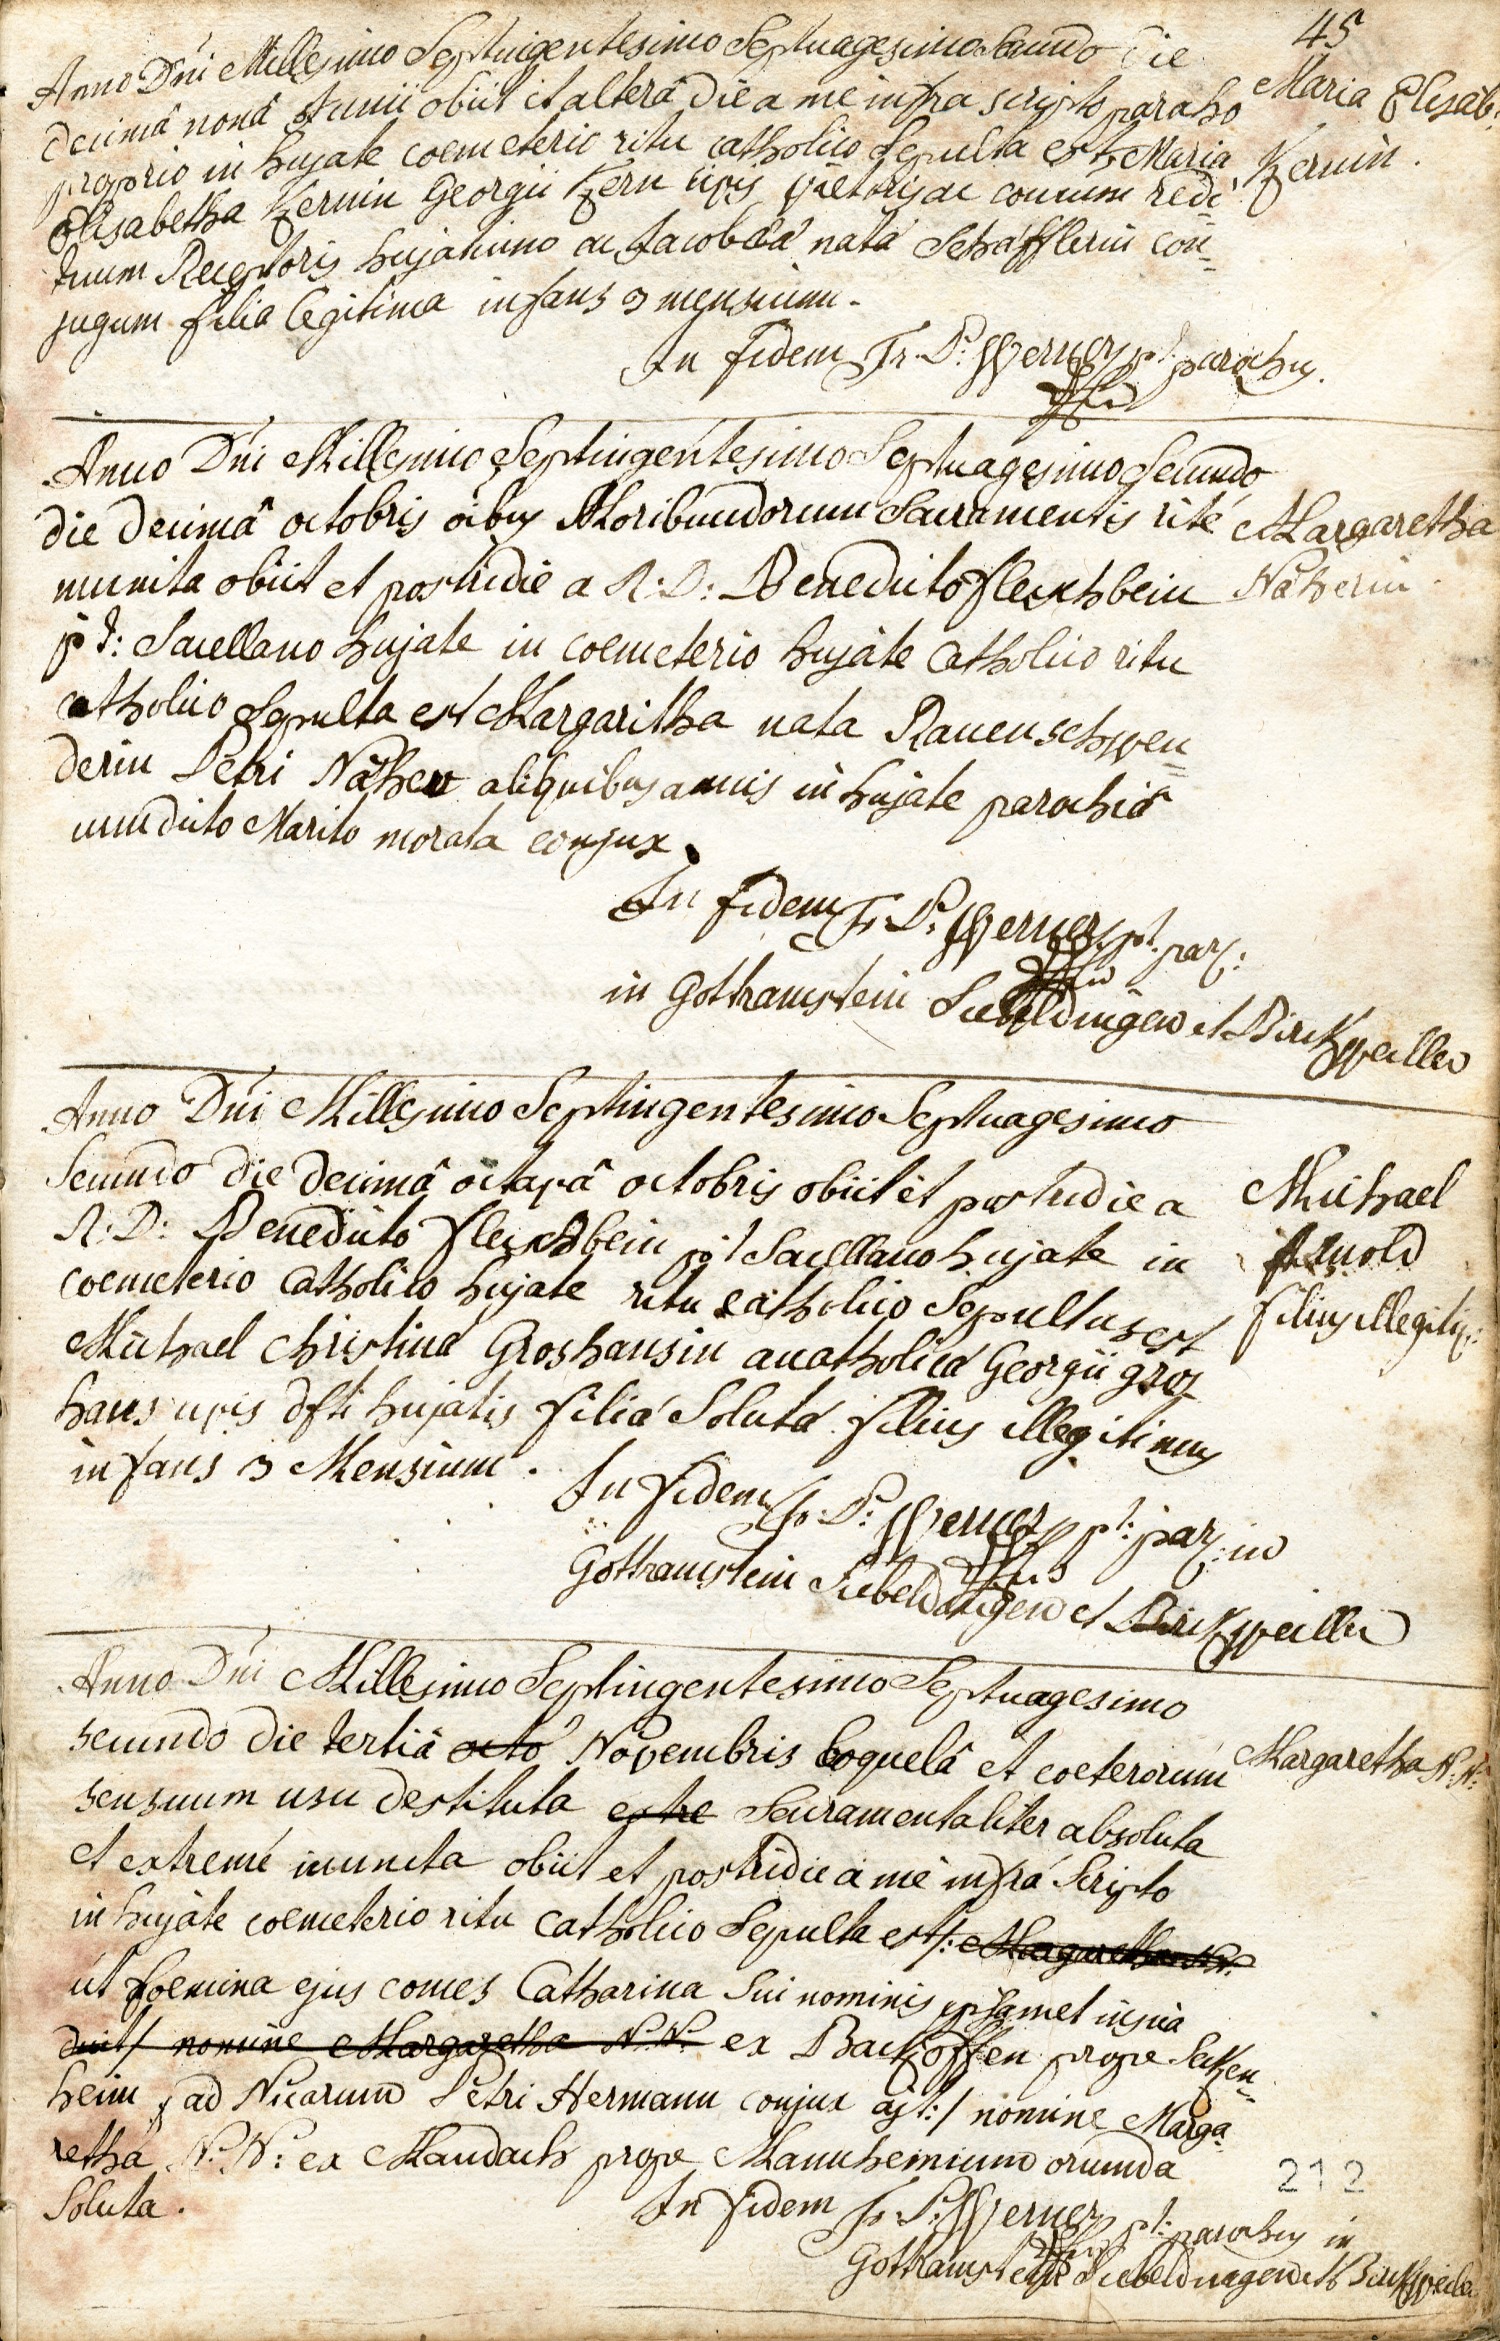 45
Anno Dñi Millesimo Septuigentesimo Septuagesimo Secundo die
decimâ nonâ Junii obiit et alterâ die a me infra scripto parocho
proprio in hujate coemeterio ritu catholico Sepulta est Maria
Elisabetha Kernin Georgii Kern civis viëtoris ac comūm redi=
tuum Receptoris hujatium ac Jacobéa nata Schäfflerin con=
jugum filia legitima infans 3 mensium.
In fidem Fr. P: Werner pt: parochus.
Maria Elisab:
Kernin.
Anno Dñi Millesimo Septingentesimo Septuagesimo Secundo
die decimâ octobris oĩbus Moribundorum Sacramentis rité
munita obiit et postridie a R: D: Benedicto Fleischbein
pt: Sacellano hujate in coemeterio hujate Catholico ritu
catholico Sepulta est Margaritha nata Rauenschwen=
derin Petri Näher aliquibus annis in hujate parochiâ
cum dicto Marito morata conjux.
In fidem Fr. P. Werner pt. par:
in Gothramstein Siebeldingen et Birckweiller
Margaretha
Näherin
Anno Dñi Millesimo Septingentesimo Septuagesimo
Secundo die decimâ octavâ octobris obiit et postridie a
R: D: Benedicto Fleischbein pt Sacellano hujate in
coemeterio Catholico hujate ritu catholico Sepultus est
Michael Christina Groshansin acatholica Georgii gros
hans civis dfti hujatis filiá Solutá filius illegitimus
infans 3 Mensium.
In fidem Fr. P: Werner pt: par: in
Gothramstein Siebeldingen et Birckweiller
Michael
Arnold
filius illegit:
Anno Dñi Millesimo Septingentesimo Septuagesimo
secundo die tertiâ octo Novembris loquelâ et coeterorum
sensuum usu destituta extre Sacramentaliter absoluta
et extremé inuncta obiit et postridie a me infrá Scripto
in hujate coemeterio ritu Catholico Sepulta est /: Margaretha N.N.
ut foemina ejus comes Catharina Sui nominis ipsamet inscia
dixit / nomine Margaretha N: N: ex Backoffen prope Secken=
heim ad Nicarum Petri Hermann conjux ajt: / nomine Marga=
retha N: N: ex Maudach prope Mannhemium oriunda
Soluta.
In fidem Fr. P: Werner pt: parochus in
Gothramstein Siebeldingen et Birckweiler
Margaretha N: N:
212